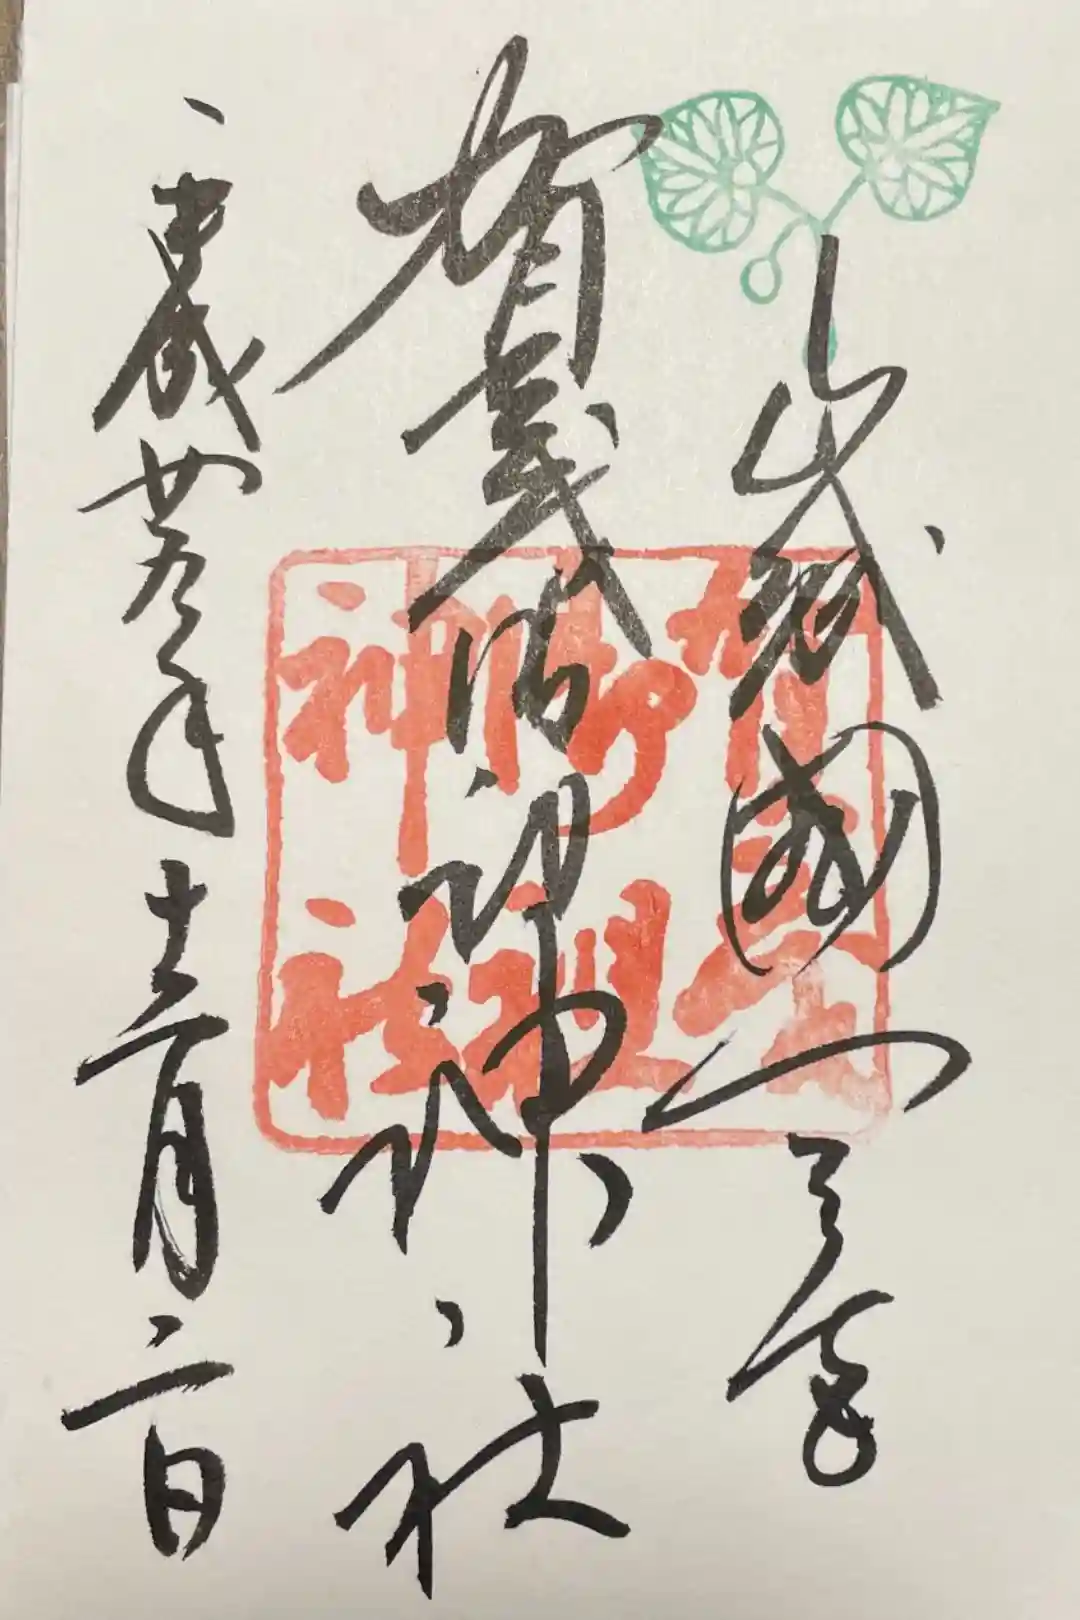 山城國一之宮
賀茂御祖神社
平成廿九年十二月二日
賀茂
御祖
神社